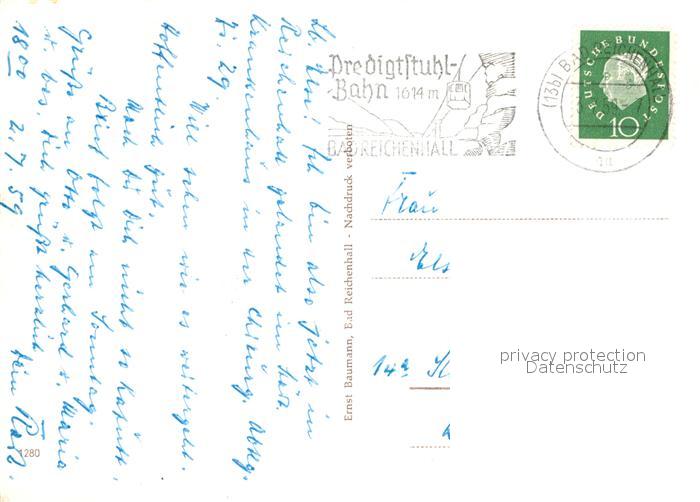 Lb. Els! Ich bin also jetzt in
Reichenhall gelandet im Städt.
Krankenhaus in der Chirurg. Abtlg.
Zi. 29.
Will sehen wie es weitergeht.
Hoffentlich gut.
Mach du dich nicht so kaputt.
Brief folgt am Sonntag.
Grüße an Otto u. Gerhard u. Maria
u. bes. dich grüßt herzlich dein
1800 2.7.59
1280
Ernst Baumann, Bad Reichenhall - Nachdruck verboten
Predigtstuhl-
Bahn 1614 m
BAD REICHENHALL
(13b) BAD REICHENHALL
DEUTSCHE BUNDESPOST
10
Frau
Els
14a
privacy protection
Datenschutz